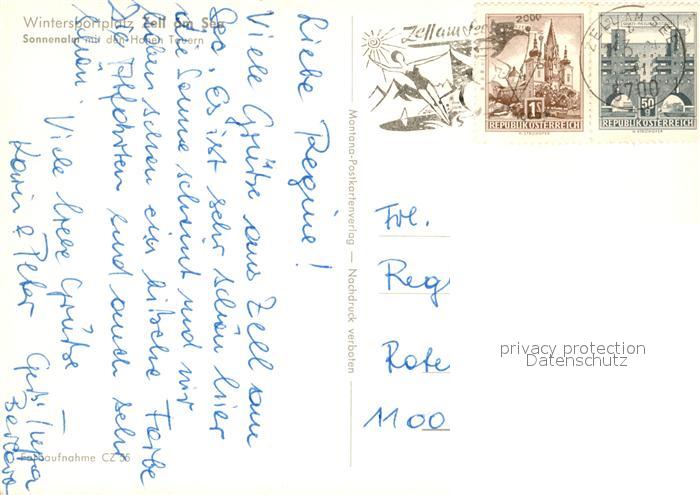 Wintersportplatz Zell am See
Sonnenalm mit den Hohen Tauern
Liebe Regine!
Viele Grüße aus Zell am
See. Es ist sehr schön hier
die Sonne scheint und wir
haben schon ein bißchen Farbe
Die Abfahrten sind auch sehr
schön. Viele liebe Grüße
Karin & Peter
Barbara
Farbaufnahme CZ 55
Montana-Postkartenverlag — Nachdruck verboten
Zell am See
2000
1S
REPUBLIK ÖSTERREICH
H. STROHOFER
ZELL AM SEE
5700
50
g
REPUBLIK ÖSTERREICH
H. STROHOFER
Frl.
Reg
Rote
1100
privacy protection
Datenschutz